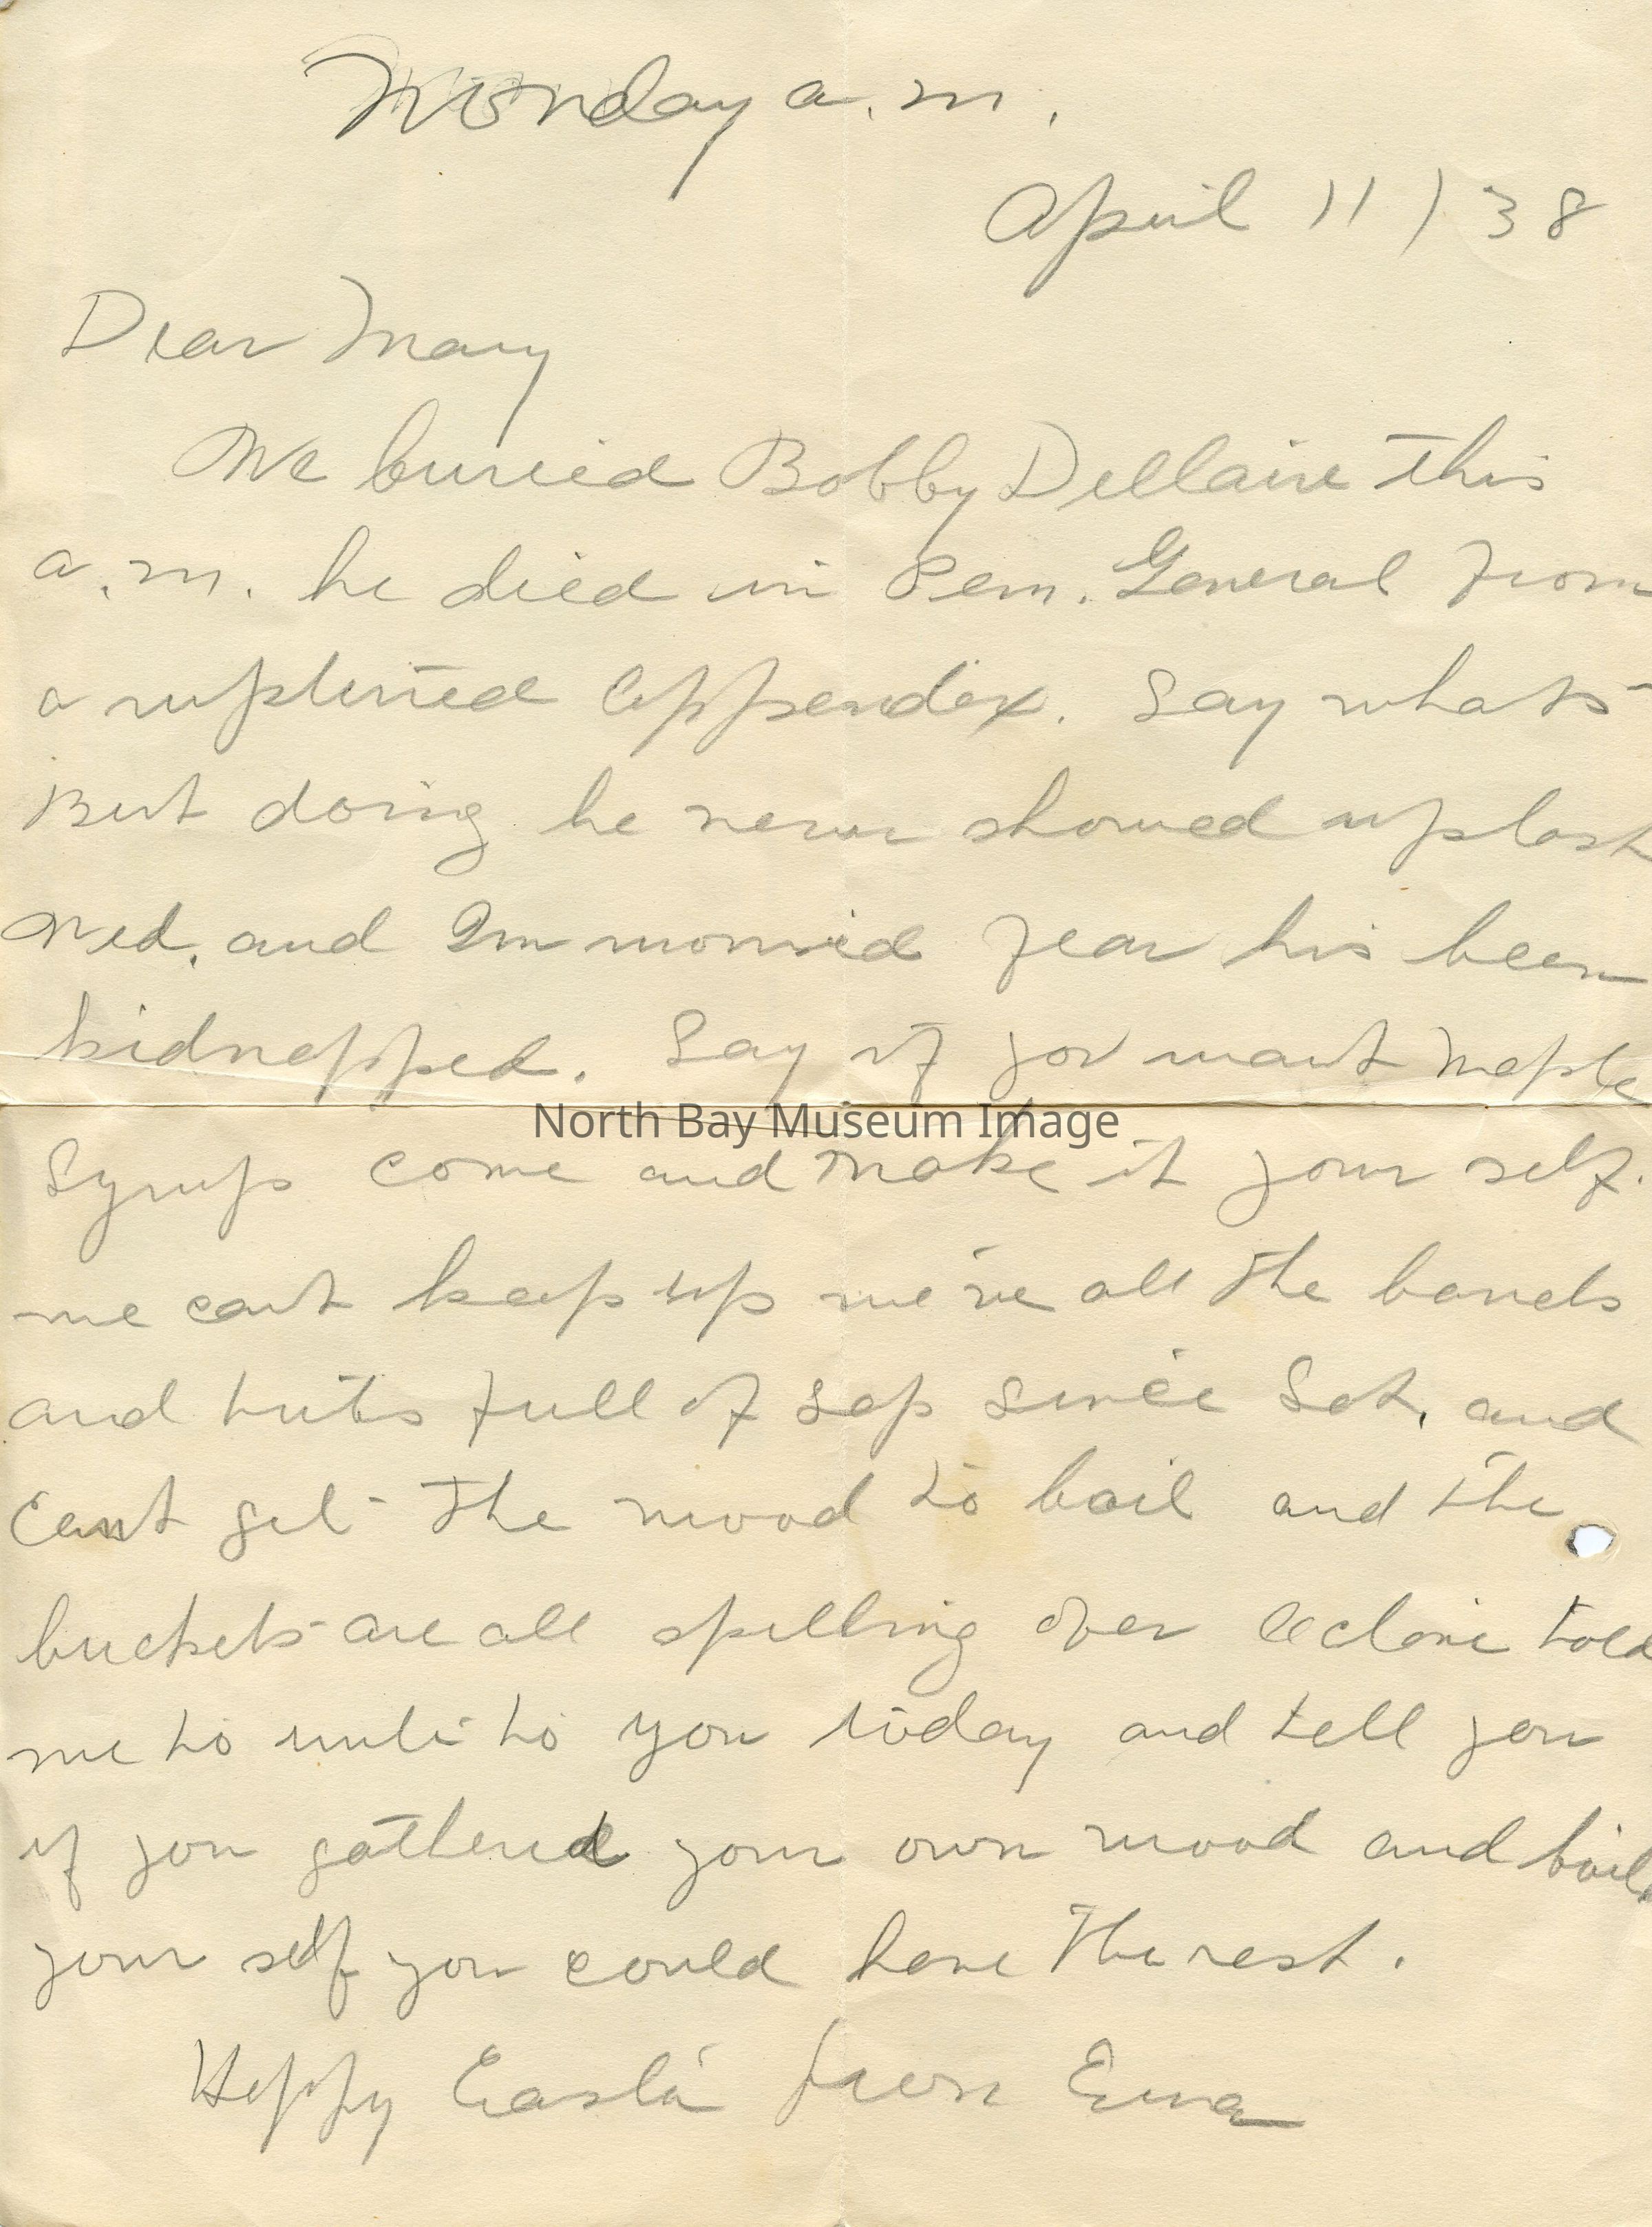 Monday a.m.
April 11 / 38
Dear Mary
We buried Bobby Dellaire this
a.m. he died in Pem. General from
a rupterred appendix. Say whats
Burt doing he never showed up last
Wed. and Im worried fear his been
kidnapped. Say if you want Maple
North Bay Museum Image
Syrup come and make it your self.
we cant keep up we've all the barrels
and tubs full of sap since Sat. and
Cant get the wood to boil and the
buckets are all spilling over told
me to write to you today and tell you
if you gathered your own wood and boil
your self you could have the rest.
Happy Easter from